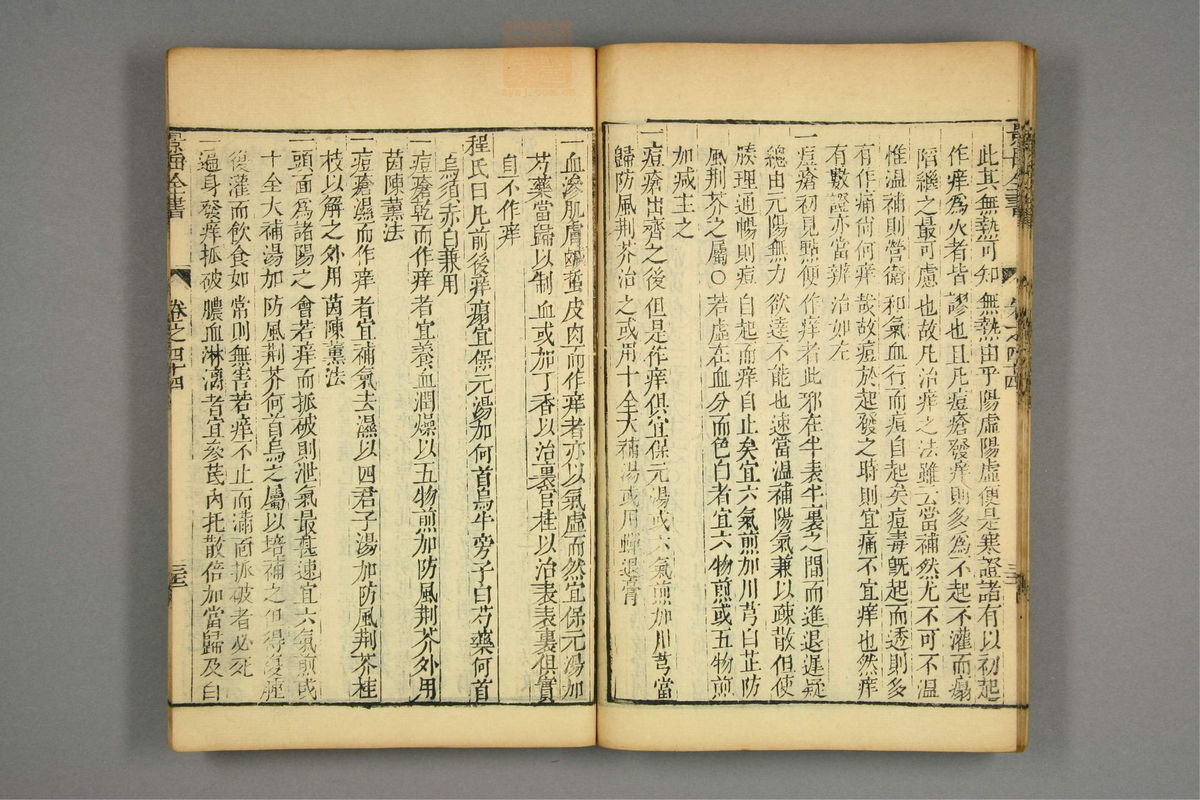 此其無熱可知無熱由乎陽虛陽虛便是寒證諸有以初起
作痒爲火者皆謬也且凡痘瘡發痒則多爲不起不灌而塌
陷繼之最可慮也故凡治痒之法雖云當補然尤不可不温
惟温補則營衛和氣血行而痘自起矣痘毒既起而透則多
有作痛尚何痒哉故痘於起發之時則宜痛不宜痒也然痒
有數證亦當辨治如左
一痘瘡初見㸃便作痒者此邪在半表半裏之間而進退遲疑
總由元陽無力欲達不能也速當温補陽氣兼以疎散但使
腠理通暢則痘自起而痒自止矣宜六氣煎加川芎白芷防
風荆芥之屬○若虛在血分而色白者宜六物煎或五物煎
加減主之
一痘瘡出齊之後但是作痒俱宜保元湯或六氣煎加川芎當
歸防風荆芥治之或用十全大補湯或用蟬退膏
景岳全書
卷之四十四
一血滲肌膚鹹蜇皮肉而作痒者亦以氣虛而然宜保元湯加
芍藥當歸以制血或加丁香以治裏官桂以治表表裏俱實
自不作痒
程氏曰凡前後痒塌宜保元湯加何首烏牛蒡子白芍藥何首
烏須赤白兼用
一痘瘡乾而作痒者宜養血潤燥以五物煎加防風荆芥外用
茵陳薰法
一痘瘡濕而作痒者宜補氣去濕以四君子湯加防風荆芥桂
枝以解之外用茵陳薰法
一頭面爲諸陽之會若痒而抓破則泄氣最甚速宜六氣煎或
十全大補湯加防風荆芥何首烏之屬以培補之但得復腫
復灌而飲食如常則無害若痒不止而滿面抓破者必死
一遍身發痒抓破膿血淋漓者宜參芪内托散倍加當歸及白
景岳全書
卷之四十四